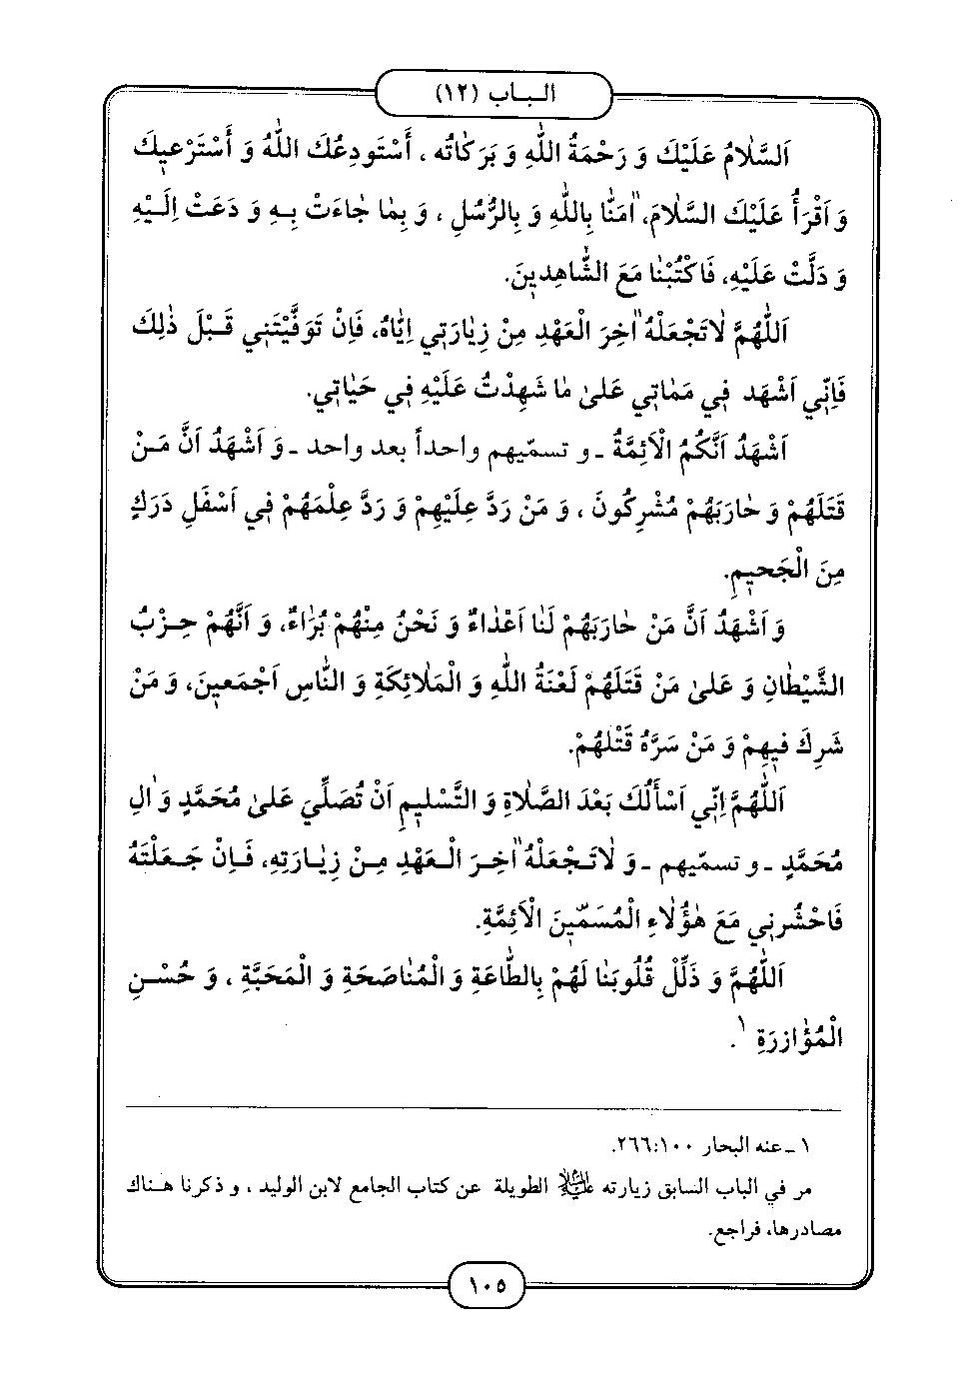 الباب (١٢)
اَلسَّلٰامُ عَلَيْكَ وَ رَحْمَةُ اللّٰهِ وَ بَرَكٰاتُه ، أَسْتَودِعُكَ اللّٰهُ وَ أَسْتَرْعيٖكَ
وَ اَقْرَأُ عَلَيْكَ السَّلٰامَ، اٰمَنّٰا بِاللّٰهِ وَ بِالرُّسُلِ ، وَ بِمٰا جٰاءَتْ بِهِ وَ دَعَتْ اِلَيْهِ
وَ دَلَّتْ عَلَيْهِ، فَاكْتُبْنٰا مَعَ الشّٰاهِديٖنَ.
اَللّٰهُمَّ لٰاتَجْعَلْهُ اٰخِرَ الْعَهْدِ مِنْ زِيٰارَتيٖ اِيّٰاهُ، فَاِنْ تَوَفَّيْتَنيٖ قَبْلَ ذٰلِكَ
فَاِنّيٖ اَشْهَد فيٖ مَمٰاتيٖ عَلىٰ مٰا شَهِدْتُ عَلَيْهِ فيٖ حَيٰاتيٖ.
اَشْهَدُ اَنَّكُمُ الْاَئِمَّةُ ـ و تسمّيهم واحداً بعد واحد ـ وَ اَشْهَدُ اَنَّ مَنْ
قَتَلَهُمْ وَ حٰارَبَهُمْ مُشْرِكُونَ ، وَ مَنْ رَدَّ عَلَيْهِمْ وَ رَدَّ عِلْمَهُمْ فيٖ اَسْفَلِ دَرَكٍ
مِنَ الْجَحيٖمِ.
وَ اَشْهَدُ اَنَّ مَنْ حٰارَبَهُمْ لَنٰا اَعْدٰاءٌ وَ نَحْنُ مِنْهُمْ بُرَاٰءٌ، وَ اَنَّهُمْ حِزْبُ
الشَّيْطٰانِ وَ عَلىٰ مَنْ قَتَلَهُمْ لَعْنَةُ اللّٰهِ وَ الْمَلٰائِكَةِ وَ النّٰاسِ اَجْمَعيٖنَ، وَ مَنْ
شَرِكَ فيٖهِمْ وَ مَنْ سَرَّهُ قَتْلُهُمْ.
اَللّٰهُمَّ اِنّيٖ اَسْأَلُكَ بَعْدَ الصَّلٰاةِ وَ التَّسْليٖمِ اَنْ تُصَلِّيَ عَلىٰ مُحَمَّدٍ وَ اٰلِ
مُحَمَّدٍ ـ و تسمّيهم ـ وَ لٰاتَجْعَلْهُ اٰخِرَ الْعَهْدِ مِنْ زِيٰارَتِهِ، فَاِنْ جَعَلْتَهُ
فَاحْشُرنيٖ مَعَ هٰؤُلٰاءِ الْمُسَمّيٖنَ الْاَئِمَّةِ.
اَللّٰهُمَّ وَ ذَلِّلْ قُلُوبَنٰا لَهُمْ بِالطّٰاعَةِ وَ الْمُنٰاصَحَةِ وَ الْمَحَبَّةِ ، وَ حُسْنِ
الْمُؤٰازَرَةِ ١.
١ ـ عنه البحار ١٠٠:٢٦٦.
مر في الباب السابق زيارته عليه السلام الطويلة عن كتاب الجامع لابن الوليد ، و ذكرنا هناك
مصادرها، فراجع.
١٠٥